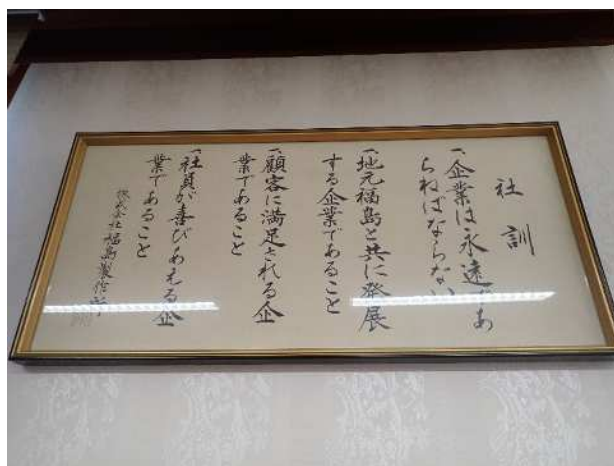 社訓
一、企業は永遠であ
らねばならない
一、地元福島と共に発展
する企業であること
一、顧客に満足される企
業であること
一、社員が喜びあえる企
業であること
株式会社福島製作所